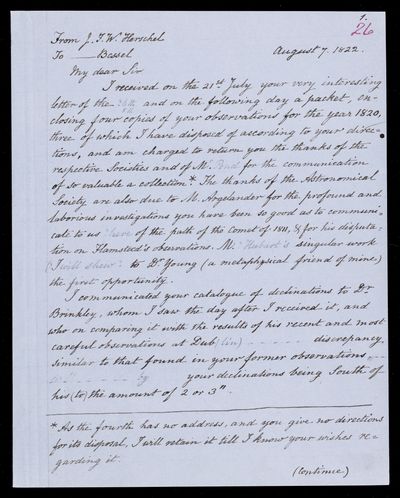 1.
26
From J. F. W. Herschel
To —— Bessel
August 7. 1822.
My dear Sir
I received on the 21st July your very interesting
letter of the and on the following day a packet, en-
closing four copies of your observations for the year 1820,
three of which I have disposed of according to your direc-
tions, and am charged to return you the thanks of the
respective Societies and of Mr. for the communication
of so valuable a collection.* The thanks of the Astronomical
Society are also due to M. Argelander for the profound and
laborious investigations you have been so good as to communi-
cate to us here of the path of the Comet of 1811, & for his disputa-
tion on Flamsteed's observations. Mr. Herbart's singular work
(I will shew) to Dr Young (a metaphysical friend of mine)
the first opportunity.
I communicated your catalogue of declinations to Dr
Brinkley, whom I saw the day after I received it, and
who on comparing it with the results of his recent and most
careful observations at Dub(lin) - - - - - discrepancy
similar to that found in your former observations - -
your declinations being South of
his (to) the amount of 2 or 3".
* As the fourth has no address, and you give no directions
for its disposal, I will retain it till I know your wishes re-
garding it.
(Continue)